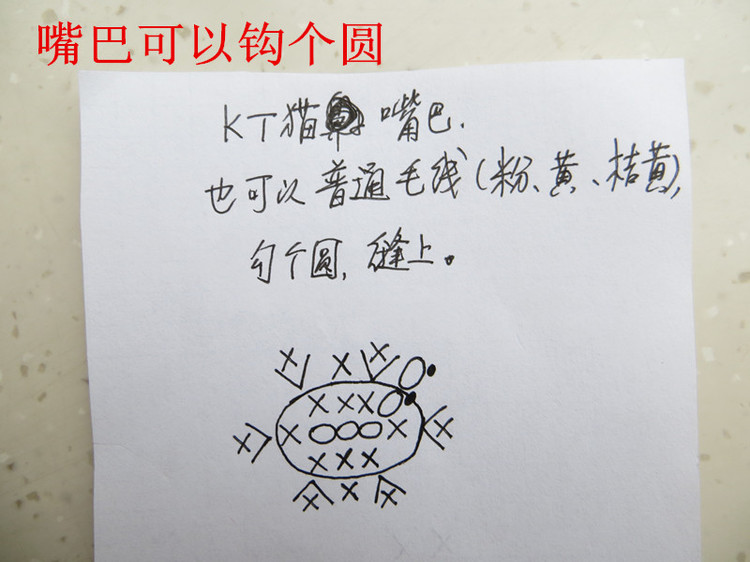 嘴巴可以钩个圆
KT猫 嘴巴.
也可以普通毛线(粉、黄、桔黄),
勾个圆,缝上。